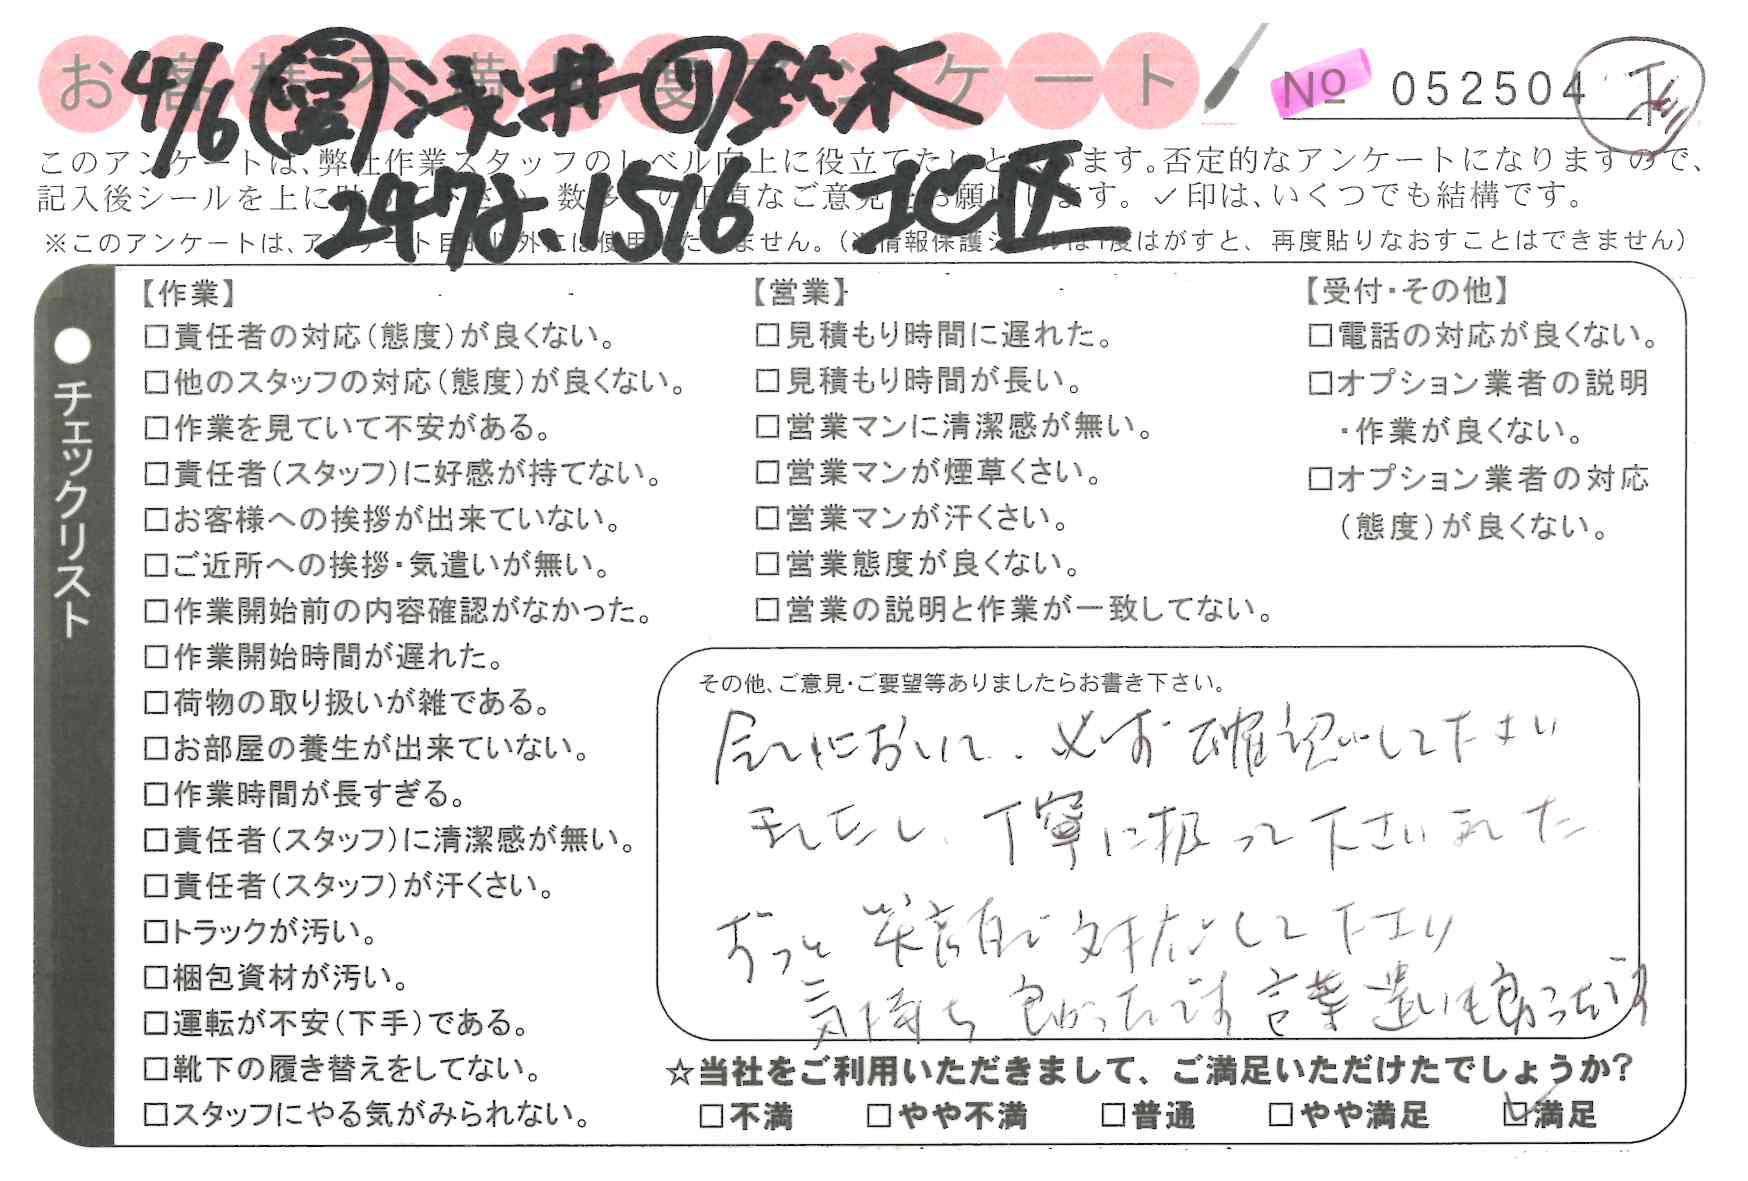 お客様不満足度アンケート
No 052504
4/6 浅井 鈴木
247 1516 北区
このアンケートは、弊社作業スタッフのレベル向上に役立てたいと思います。否定的なアンケートになりますので、
記入後シールを上に貼って下さい。数多くの正直なご意見をお願いします。✓印は、いくつでも結構です。
※このアンケートは、アンケート目的以外には使用いたしません。(※情報保護シールは1度はがすと、再度貼りなおすことはできません)
●チェックリスト
【作業】
□責任者の対応(態度)が良くない。
□他のスタッフの対応(態度)が良くない。
□作業を見ていて不安がある。
□責任者(スタッフ)に好感が持てない。
□お客様への挨拶が出来ていない。
□ご近所への挨拶・気遣いが無い。
□作業開始前の内容確認がなかった。
□作業開始時間が遅れた。
□荷物の取り扱いが雑である。
□お部屋の養生が出来ていない。
□作業時間が長すぎる。
□責任者(スタッフ)に清潔感が無い。
□責任者(スタッフ)が汗くさい。
□トラックが汚い。
□梱包資材が汚い。
□運転が不安(下手)である。
□靴下の履き替えをしてない。
□スタッフにやる気がみられない。
【営業】
□見積もり時間に遅れた。
□見積もり時間が長い。
□営業マンに清潔感が無い。
□営業マンが煙草くさい。
□営業マンが汗くさい。
□営業態度が良くない。
□営業の説明と作業が一致してない。
【受付・その他】
□電話の対応が良くない。
□オプション業者の説明
・作業が良くない。
□オプション業者の対応
(態度)が良くない。
その他、ご意見・ご要望等ありましたらお書き下さい。
全てにおいて、必ず確認して下さい
ましたし、丁寧に扱って下さいました
ずっと笑顔で対応して下さり
気持ち良かったです 言葉遣いも良かったです
☆当社をご利用いただきまして、ご満足いただけたでしょうか?
□不満 □やや不満 □普通 □やや満足 ☑満足